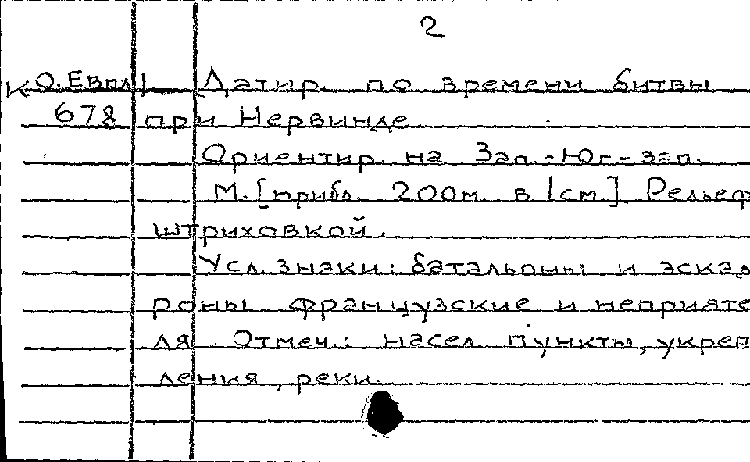 2
К О. Евпл Датир. по времени битвы
678 при Нервинде
Ориентир. на Зап.-Юг-зап.
М. [прибл. 200м. в 1см.] Рельеф
штриховкой.
Усл. знаки: батальоны и эскад
роны французские и неприяте
ля Отмеч.: насел. пункты, укреп
ления, реки.